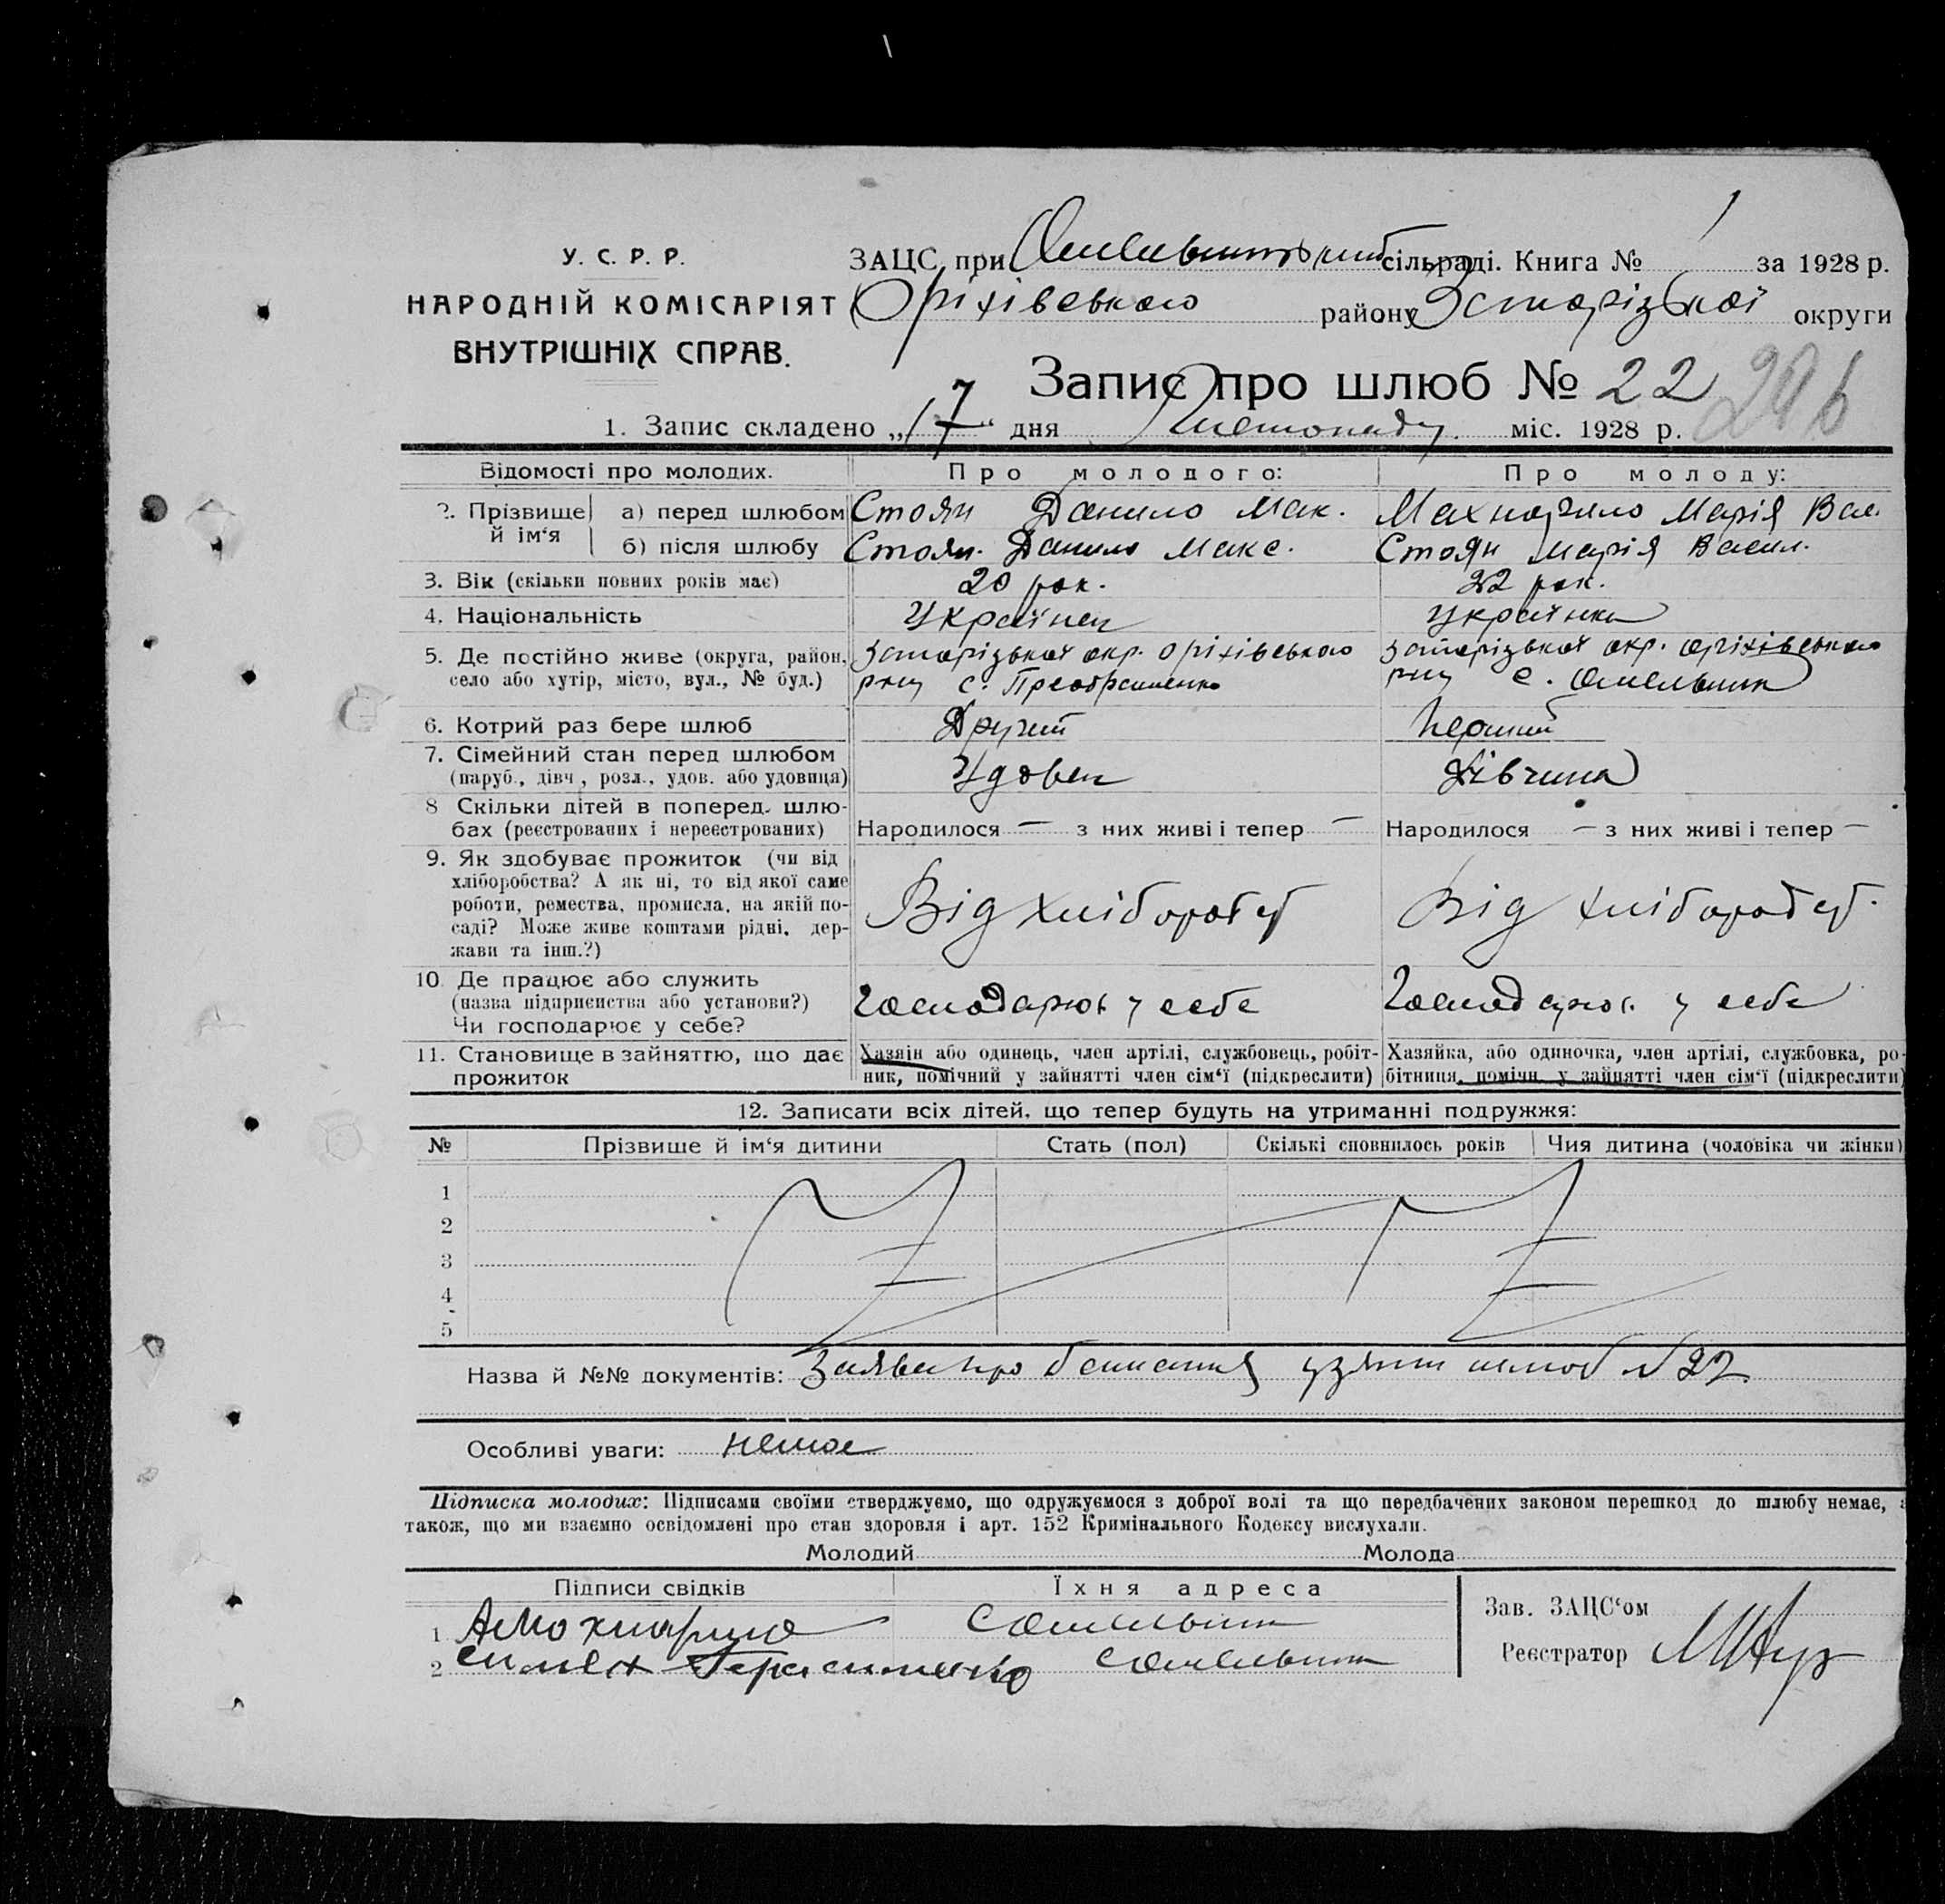 У. С. Р. Р.
НАРОДНІЙ КОМІСАРІЯТ
ВНУТРІШНІХ СПРАВ.
ЗАЦС при Омельницький сільраді. Книга № 1 за 1928 р.
Оріхівського району Запорізької округи
Запис про шлюб № 22
1. Запис складено „17“ дня Листопаду міс. 1928 р.
Відомості про молодих. Про молодого: Про молоду:
2. Прізвище й ім‘я а) перед шлюбом Стоян Данило Мак. Махнарило Марія Вас.
б) після шлюбу Стоян. Данило Макс. Стоян Марія Васил.
3. Вік (скільки повних років має) 20 рок. 22 рок.
4. Національність Українец Українка
5. Де постійно живе (округа, район, село або хутір, місто, вул., № буд.) Запорізької окр. Оріхівського рну с. Преображенка Запорізької окр. Оріхівського рну с. Омельник
6. Котрий раз бере шлюб Другий Перший
7. Сімейний стан перед шлюбом (паруб., дівч., розл., удов. або удовиця) Удовец Дівчина
8 Скільки дітей в поперед. шлюбах (реєстрованих і нереєстрованих) Народилося — з них живі і тепер — Народилося — з них живі і тепер —
9. Як здобуває прожиток (чи від хліборобства? А як ні, то від якої саме роботи, ремества, промисла, на якій посаді? Може живе коштами рідні, держави та інш.?) Від хлібороб Від хлібороб
10. Де працює або служить (назва підприємства або установи?) Чи господарює у себе? Господарює у себе Господарює у себе
11. Становище в зайняттю, що дає прожиток Хазяїн або одинець, член артілі, службовець, робітник, помічний у зайнятті член сім‘ї (підкреслити) Хазяйка, або одиночка, член артілі, службовка, робітниця, помічн. у зайнятті член сім‘ї (підкреслити)
12. Записати всіх дітей, що тепер будуть на утриманні подружжя:
№ Прізвише й ім‘я дитини Стать (пол) Скількі сповнилось років Чия дитина (чоловіка чи жінки)
1
2
3
4
5
Назва й №№ документів: Заява про бажання узяти шлюб № 22
Особливі уваги: немає
Підписка молодих: Підписами своїми стверджуємо, що одружуємося з доброї волі та що передбачених законом перешкод до шлюбу немає, а
також, що ми взаємно освідомлені про стан здоровля і арт. 152 Кримінального Кодексу вислухали.
Молодий Молода
Підписи свідків Їхня адреса
1 с Омельник
2 Герасименко с Омельник
Зав. ЗАЦС‘ом
Реєстратор